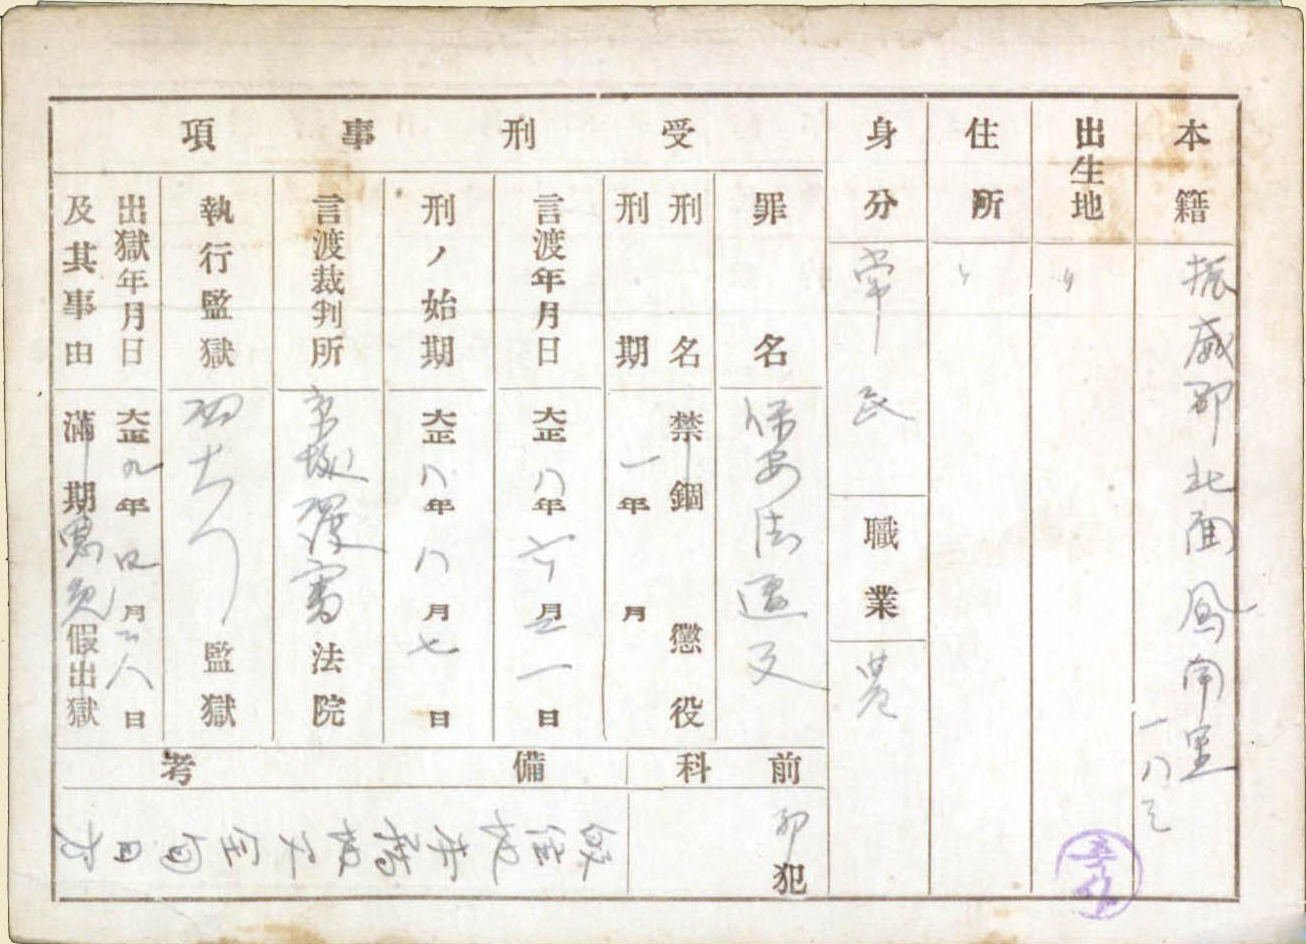 本籍
振威郡北面鳳南里
一八三
出生地
〃
住所
〃
身分
常民
職業
農
受刑事項
罪名
保安法違反
刑名
禁錮 懲役
刑期
一年 月
言渡年月日
大正八年 月 日
刑ノ始期
大正八年八月七日
言渡裁判所
京城覆審法院
執行監獄
西大門監獄
出獄年月日
及其事由
大正九年四月二八日
満期恩免假出獄
前科
初犯
備考